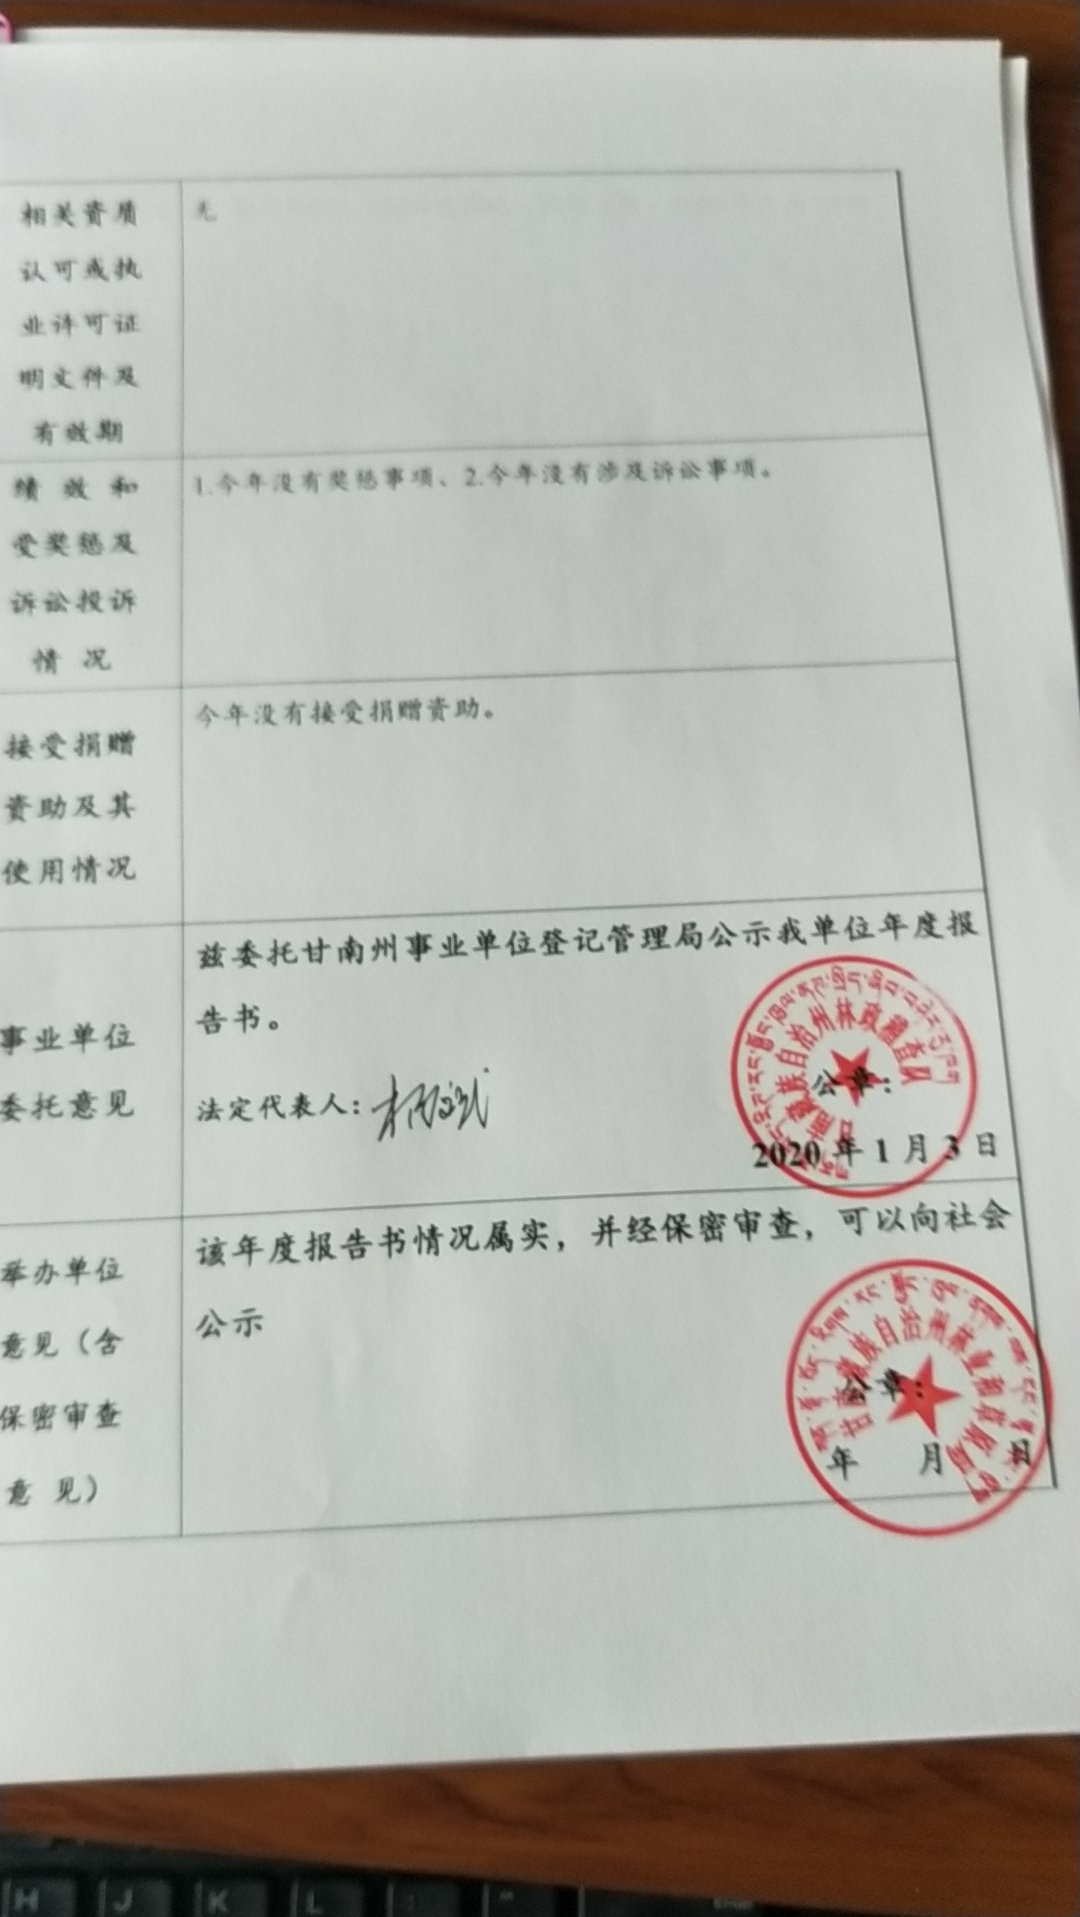 相关资质
认可或执
业许可证
明文件及
有效期
无
绩 效 和
受奖惩及
诉讼投诉
情 况
1.今年没有奖惩事项、2.今年没有涉及诉讼事项。
接受捐赠
资助及其
使用情况
今年没有接受捐赠资助。
事业单位
委托意见
兹委托甘南州事业单位登记管理局公示我单位年度报
告书。
法定代表人:
公章:
甘南藏族自治州林政稽查队
2020 年 1 月 3 日
举办单位
意见（含
保密审查
意 见）
该年度报告书情况属实，并经保密审查，可以向社会
公示
公章:
甘南藏族自治州林业和草原局
年 月 日
H J K L